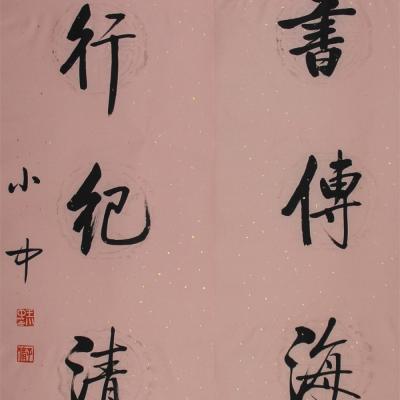 書傳海
行紀清
小中